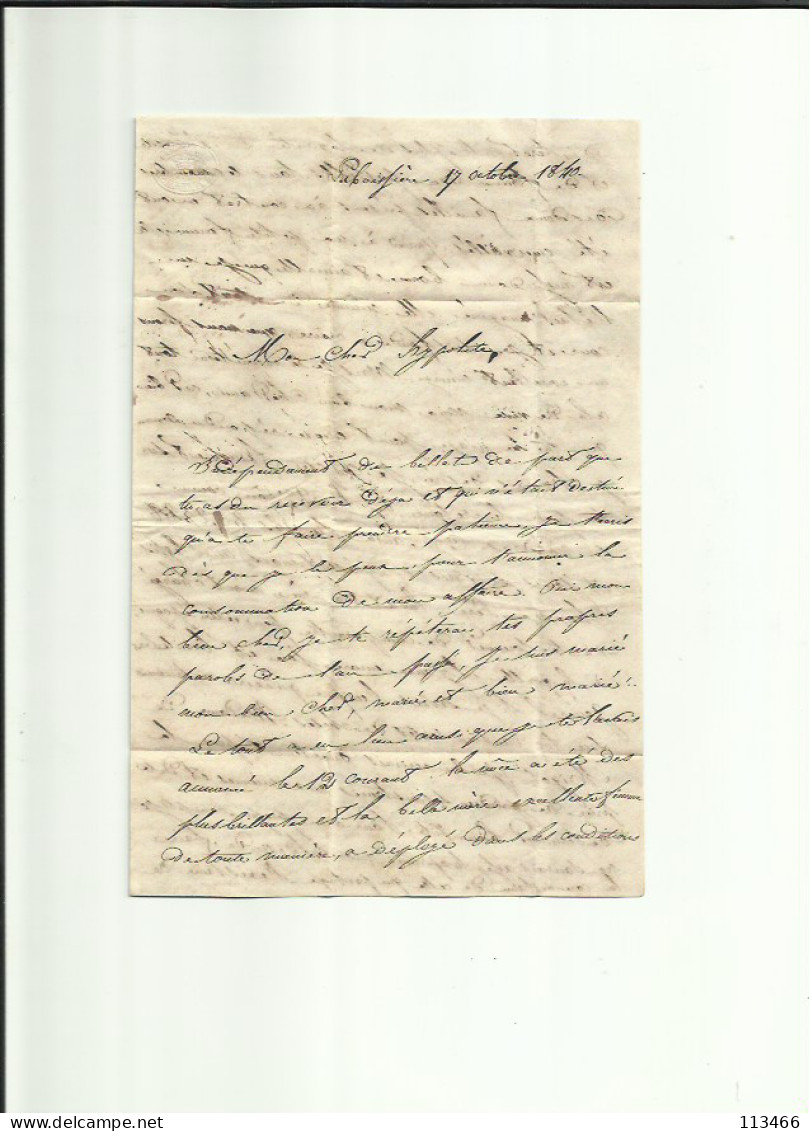 Laboissière 17 octobre 1840.
Mon cher hypolite,
Indépendament du billet de part que
tu as du recevoir deja et qui n'était destiné
qu'a te faire prendre patience, je t'ecris
dès que je le peux pour t'annoncer la
consommation de mon affaire. Oui mon
bien cher, je te répéterai tes propres
paroles de l'an passé, je suis marié
mon bien cher, marié et bien marié.
Le tout a eu lieu ainsi que je te l'avais
annoncé le 12 courant. la noce a été des
plus brillantes et la belle mère excellente femme
de toute manière, a déployé dans les conditions
113466